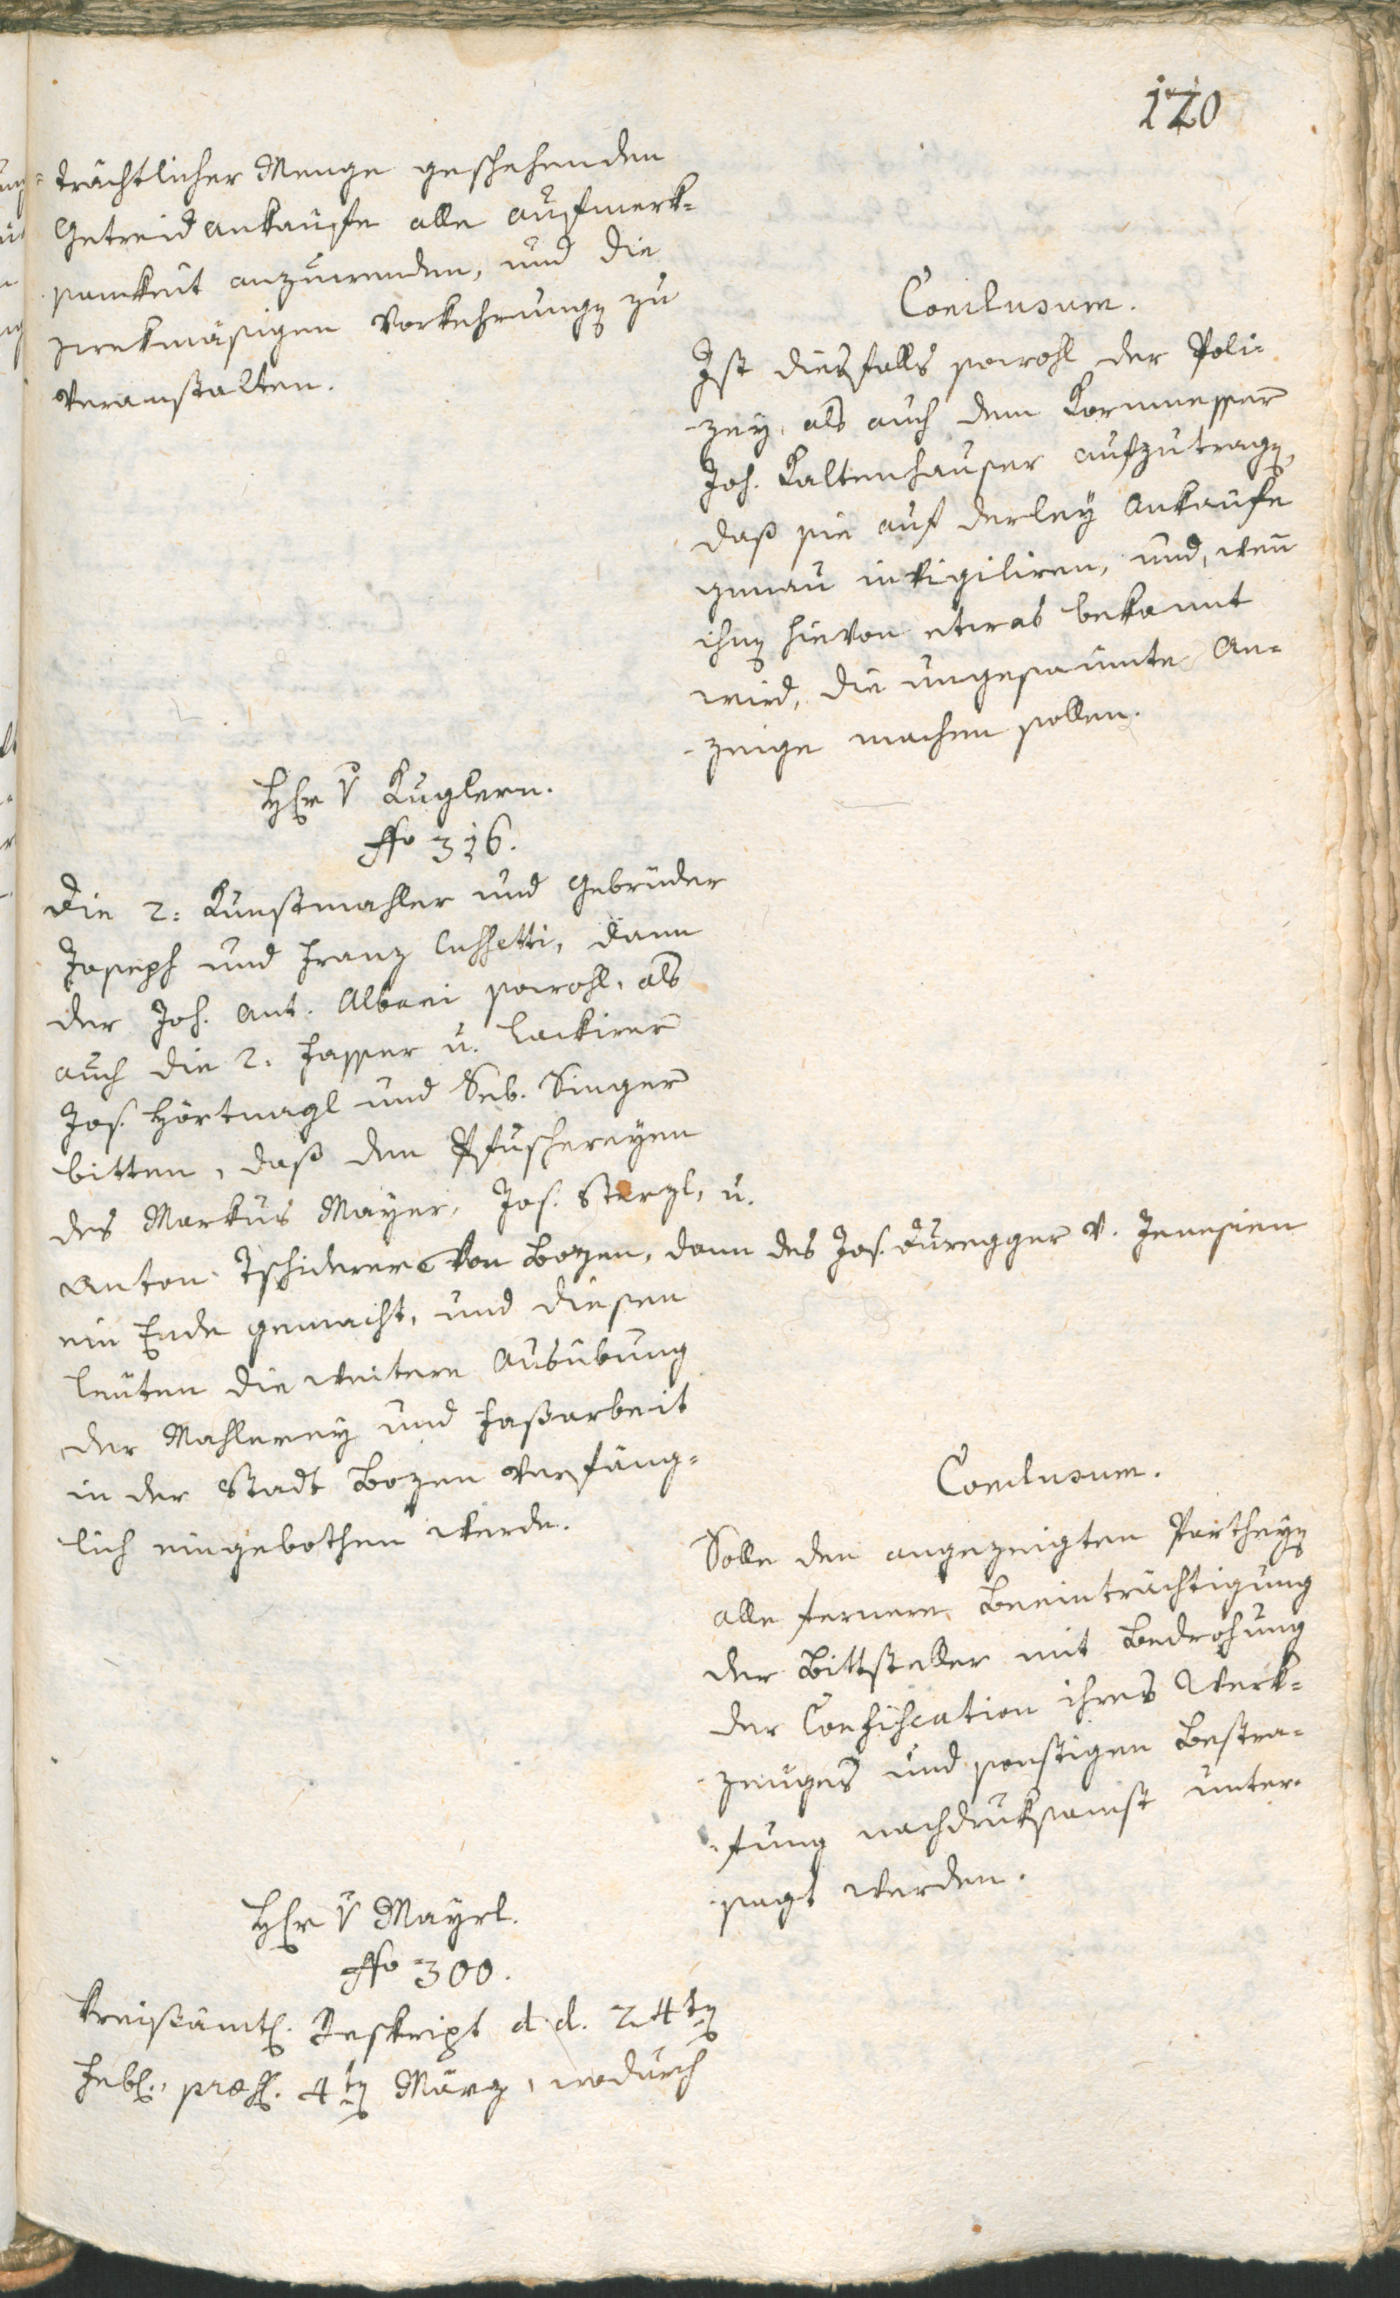 120
trächtlicher Menge geschehenden
Getreidankaüfe alle aufmerk-
samkeit anzuwenden, und die
zwekmäsigen Vorkehrungen zu
veranstalten.
Conclusum.
Ist diesfalls sowohl der Poli-
-zey, als auch dem Kornmesser
Joh. Kaltenhauser aufzutragen,
daß sie auf derley Ankaüfe
genau invigiliren, und, wenn
ihnen hievon etwas bekannt
wird, die ungesaumte An-
-zeige machen sollen.
Herr v Kuglern.
No 316.
Die 2: Kunstmahler und Gebrüder
Joseph und Franz Cusetti, dann
der Joh. Ant. Albani sowohl, als
auch die 2. Fasser u. Lackirer
Jos. Hörtnagl und Seb. Singer
bitten, daß den Pfuschereyen
des Markus Mayer, Jos. Sterzl, u.
Anton Tschiderer von Bozen, dann des Jos. Duregger v. Jenesien
ein Ende gemacht, und diesen
Leuten die weitere Ausübung
der Mahlerey und Faßarbeit
in der Stadt Bozen verfäng-
lich eingebothen werde.
Conclusum.
Solle den angezeigten Partheyen
alle fernere Beeinträchtigung
der Bittsteller mit Bedrohung
der Confiscation ihres Werk-
-zeuges und sonstigen Bestra-
-fung nachdruksamst unter-
-sagt werden.
Herr v Mayrl.
No 300.
Kreisämtl. Reskript d. d. 24ten
Feb., præs. 4ten März, wodurch